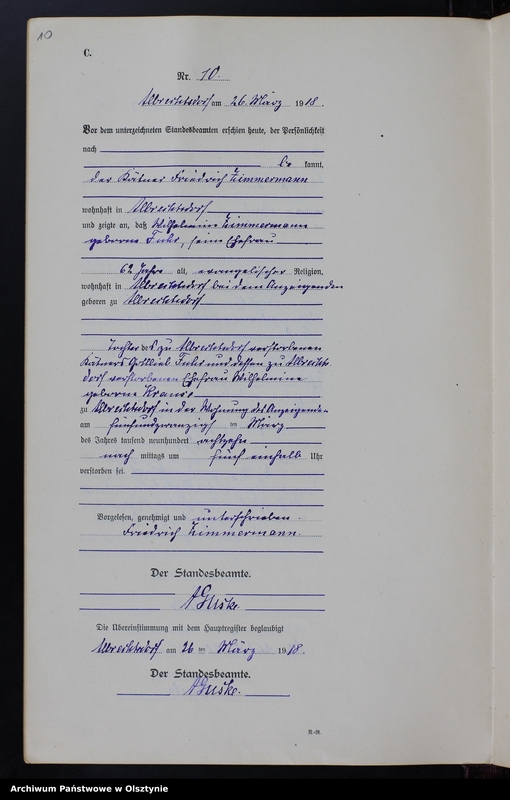 10
C.
Nr. 10.
Albrechtsdorf am 26. März 1918.
Vor dem unterzeichneten Standesbeamten erschien heute, der Persönlichkeit
nach
be kannt,
der Kätner Friedrich Zimmermann
wohnhaft in Albrechtsdorf
und zeigte an, daß Wilhelmine Zimmermann
geborne Fuhr, seine Ehefrau
62 Jahre alt, evangelischer Religion,
wohnhaft in Albrechtsdorf bei dem Anzeigenden
geboren zu Albrechtsdorf
Tochter des zu Albrechtsdorf verstorbenen
Kätners Gottlieb Fuhr und dessen zu Albrechts
dorf verstorbenen Ehefrau Wilhelmine
geborne
zu Albrechtsdorf in der Wohnung des Anzeigenden
am fünfundzwanzigsten März
des Jahres tausend neunhundert achtzehn
nach mittags um fünf einhalb Uhr
verstorben sei.
Vorgelesen, genehmigt und unterschrieben.
Friedrich Zimmermann.
Der Standesbeamte.
Die Übereinstimmung mit dem Hauptregister beglaubigt
Albrechtsdorf am 26 ten März 1918.
Der Standesbeamte.
Archiwum Państwowe w Olsztynie